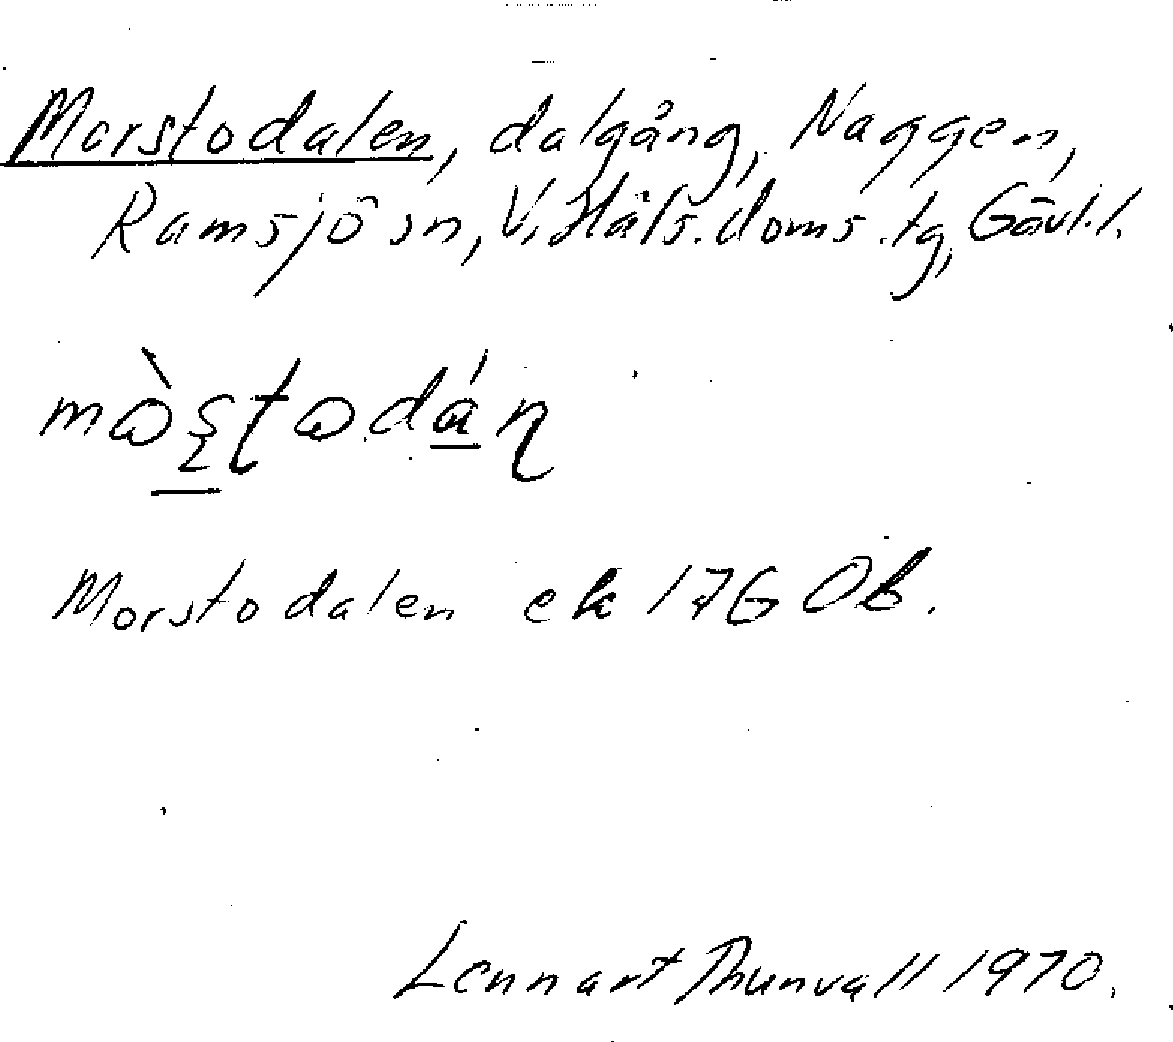 Morstodalen, dalgång, Naggen,
Ramsjö sn, V. Häls. doms. tg, Gävl. l.
Morstodalen ek 17G Ob.
Lennart Thunvall 1970.